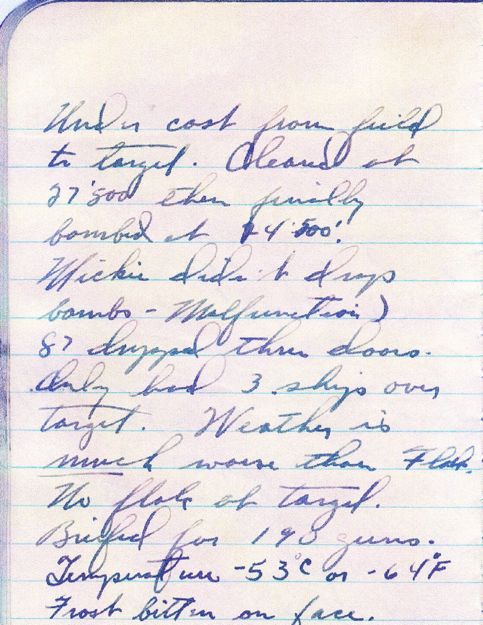 Under cast from field
to target. Cleared at
27'500 then finally
bombed at 24'500'.
Mickie didn't drop
bombs - Malfunction)
87 dropped thru doors.
Only had 3 ships over
target. Weather is
much worse than Flak.
No flak at target.
Briefed for 190 guns.
Temperature -53°C or -64°F
Frost bitten on face.